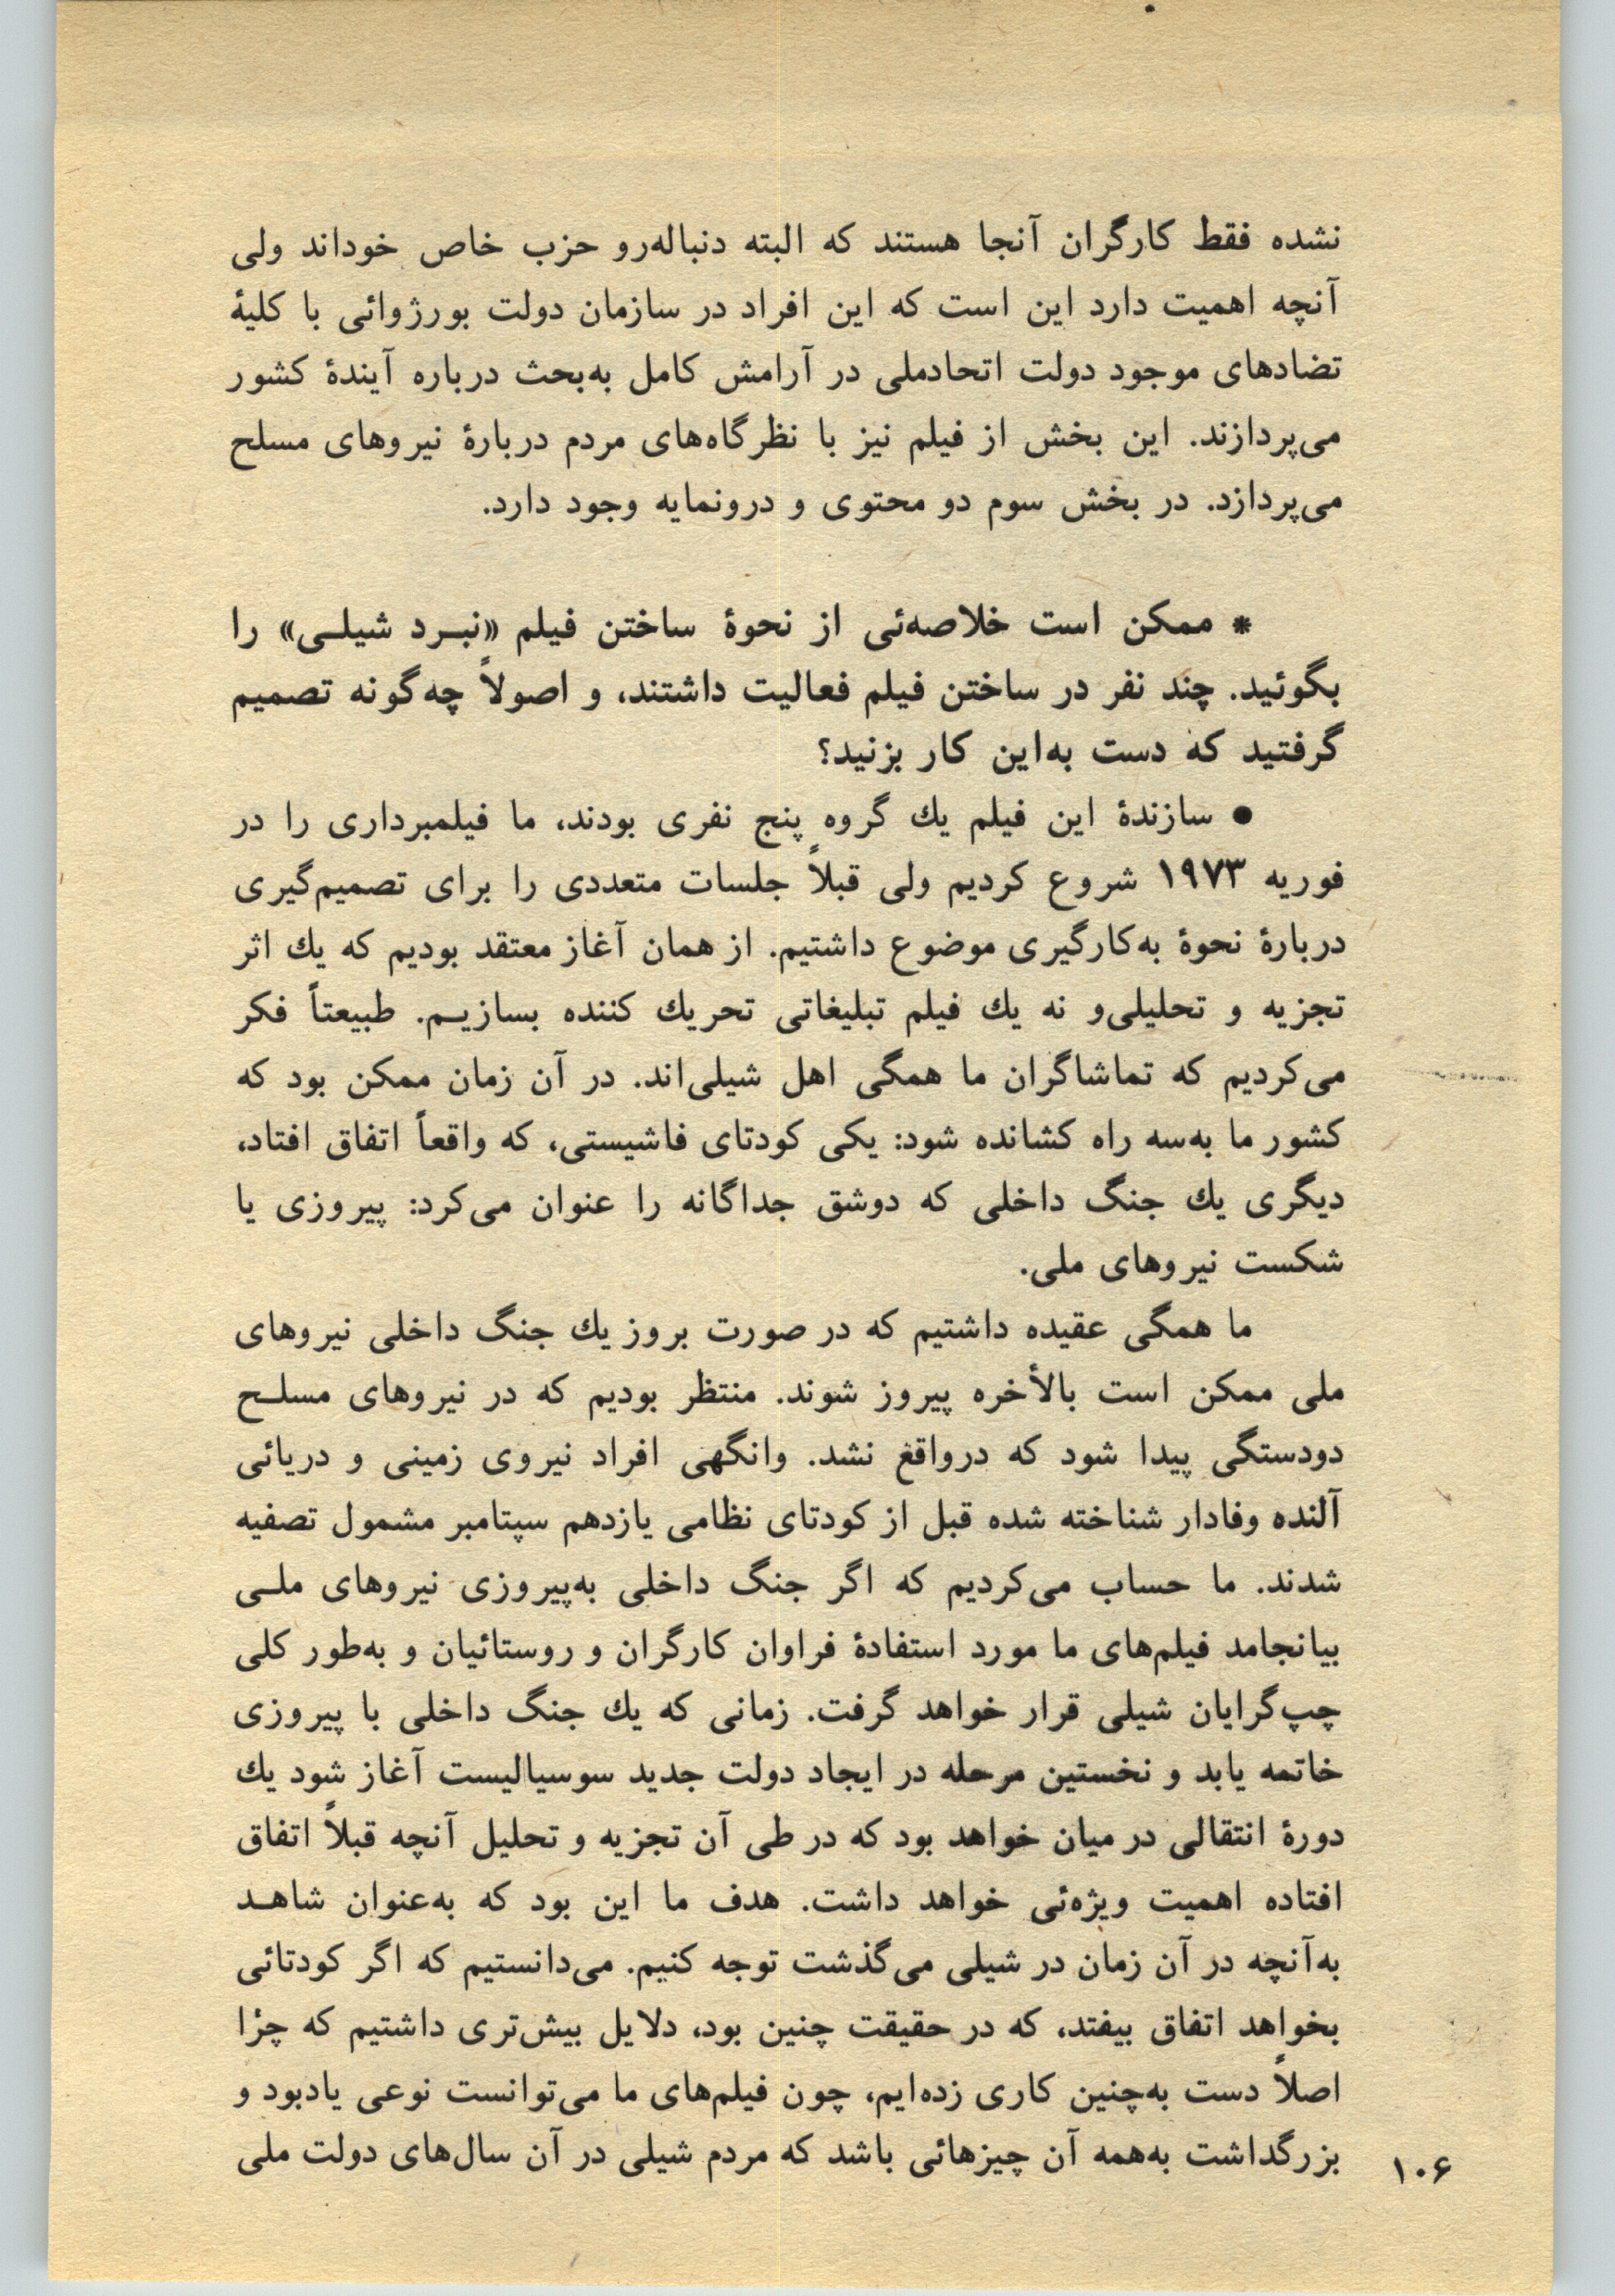 نشده فقط کارگران آنجا هستند که البته دنباله‌رو حزب خاص خوداند ولی
آنچه اهمیت دارد این است که این افراد در سازمان دولت بورژوائی با کلیهٔ
تضادهای موجود دولت اتحادملی در آرامش کامل به‌بحث درباره آیندهٔ کشور
می‌پردازند. این بخش از فیلم نیز با نظرگاه‌های مردم دربارهٔ نیروهای مسلح
می‌پردازد. در بخش سوم دو محتوی و درونمایه وجود دارد.
* ممکن است خلاصه‌ئی از نحوهٔ ساختن فیلم «نبـرد شیلـی» را
بگوئید. چند نفر در ساختن فیلم فعالیت داشتند، و اصولاً چه‌گونه تصمیم
گرفتید که دست به‌این کار بزنید؟
● سازندهٔ این فیلم یك گروه پنج نفری بودند، ما فیلمبرداری را در
فوریه ۱۹۷۳ شروع کردیم ولی قبلاً جلسات متعددی را برای تصمیم‌گیری
دربارهٔ نحوهٔ به‌کارگیری موضوع داشتیم. از همان آغاز معتقد بودیم که یك اثر
تجزیه و تحلیلی‌و نه یك فیلم تبلیغاتی تحریك کننده بسازیـم. طبیعتاً فکر
می‌کردیم که تماشاگران ما همگی اهل شیلی‌اند. در آن زمان ممکن بود که
کشور ما به‌سه راه کشانده شود: یکی کودتای فاشیستی، که واقعاً اتفاق افتاد،
دیگری یك جنگ داخلی که دوشق جداگانه را عنوان می‌کرد: پیروزی یا
شکست نیروهای ملی.
ما همگی عقیده داشتیم که در صورت بروز یك جنگ داخلی نیروهای
ملی ممکن است بالأخره پیروز شوند. منتظر بودیم که در نیروهای مسلـح
دودستگی پیدا شود که درواقع نشد. وانگهی افراد نیروی زمینی و دریائی
آلنده وفادار شناخته شده قبل از کودتای نظامی یازدهم سپتامبر مشمول تصفیه
شدند. ما حساب می‌کردیم که اگر جنگ داخلی به‌پیروزی نیروهای ملـی
بیانجامد فیلم‌های ما مورد استفادهٔ فراوان کارگران و روستائیان و به‌طور کلی
چپ‌گرایان شیلی قرار خواهد گرفت. زمانی که یك جنگ داخلی با پیروزی
خاتمه یابد و نخستین مرحله در ایجاد دولت جدید سوسیالیست آغاز شود یك
دورهٔ انتقالی در میان خواهد بود که در طی آن تجزیه و تحلیل آنچه قبلاً اتفاق
افتاده اهمیت ویژه‌ئی خواهد داشت. هدف ما این بود که به‌عنوان شاهـد
به‌آنچه در آن زمان در شیلی می‌گذشت توجه کنیم. می‌دانستیم که اگر کودتائی
بخواهد اتفاق بیفتد، که در حقیقت چنین بود، دلایل بیش‌تری داشتیم که چرا
اصلاً دست به‌چنین کاری زده‌ایم، چون فیلم‌های ما می‌توانست نوعی یادبود و
بزرگداشت به‌همه آن چیزهائی باشد که مردم شیلی در آن سال‌های دولت ملی
۱۰۶